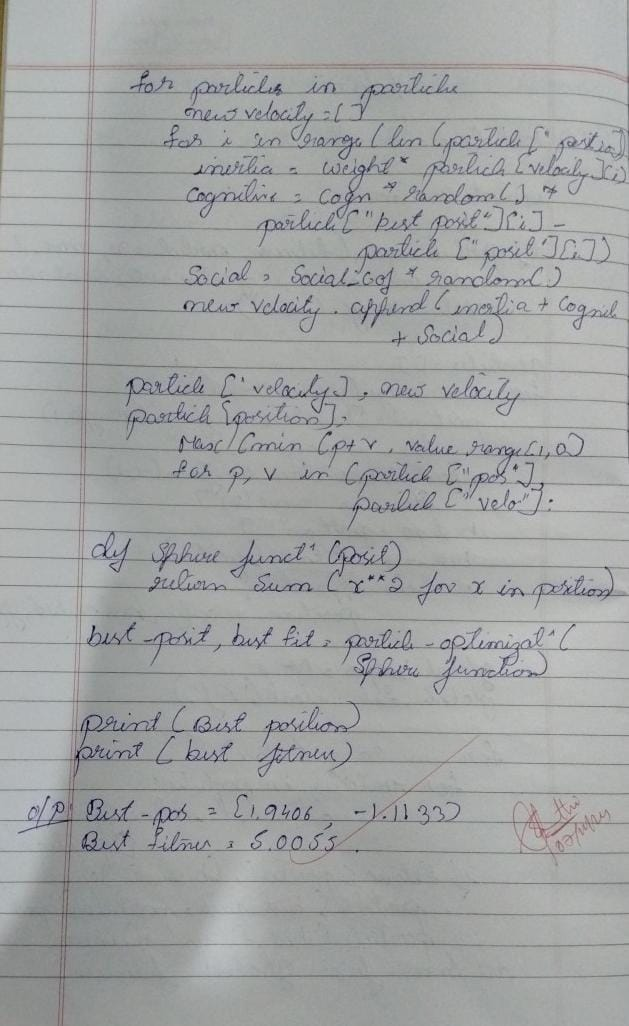 for particles in particle
new velocity = [ ]
for i in range ( len ( particle [ " position ]
inertia = weight * particle [velocity] [i]
Cognitive = Cogn * random( ) *
particle [ "best posit" ] [i] -
particle [ "posit" ] [i] )
Social = Social-cof * random( )
new velocity . append ( inertia + Cognit
+ Social )
particle [ ' velocity ] , new velocity
particle [position] ,
Max ( (min (p+v , value range [1, 0]
for p, v in (particle [ "pos" ] ,
particle [ "velo" ] :
def Sphere funct^n (posit)
return Sum ( x**2 for x in position)
best-posit, best fit = particle-optimizat^n (
Sphere function)
print ( Best position)
print ( best fitness)
O/P Best-pos = [1.9406, -1.1133)
Best fitness = 5.0055 .